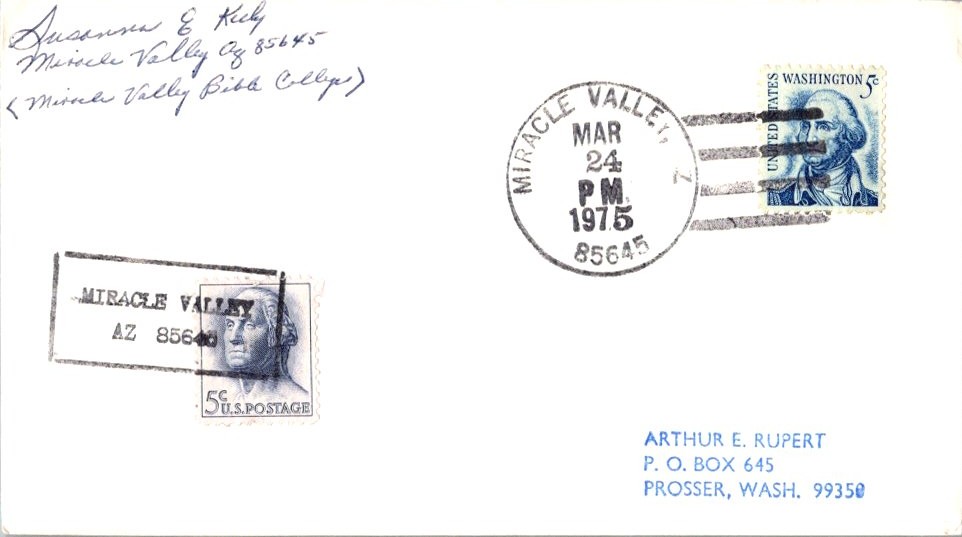 Susanna E Kirby
Miracle Valley Az 85645
(Miracle Valley Bible College)
MIRACLE VALLEY, Z
MAR
24
PM
1975
85645
UNITED STATES
WASHINGTON 5c
MIRACLE VALLEY
AZ 85645
5c
U.S. POSTAGE
ARTHUR E. RUPERT
P. O. BOX 645
PROSSER, WASH. 99350